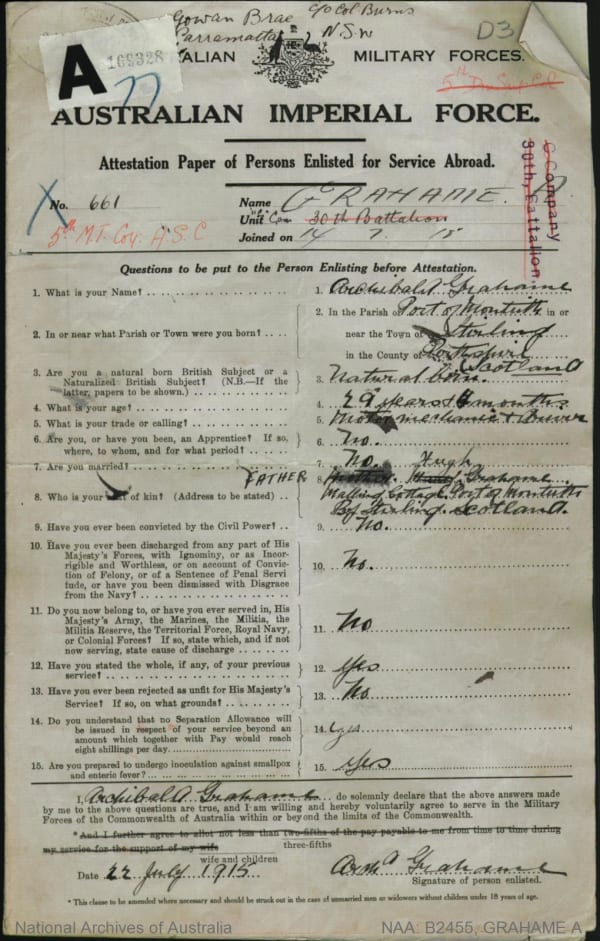 Gowan Brae c/o Col Burns
Parramatta N.S.W
D3
A 169328
77
AUSTRALIAN MILITARY FORCES.
AUSTRALIAN IMPERIAL FORCE.
Attestation Paper of Persons Enlisted for Service Abroad.
No. 661
Name GRAHAME. A
Unit "C" Coy 30th Battalion
5th M.T. Coy. A.S.C
Joined on 14 7 15
C Company
30th Battalion
Questions to be put to the Person Enlisting before Attestation.
1. What is your Name? 1. Archibald Grahame
2. In or near what Parish or Town were you born? 2. In the Parish of Port of Monteith in or
near the Town of Stirling
in the County of Perthshire
Scotland
3. Are you a natural born British Subject or a
Naturalized British Subject? (N.B.—If the
latter, papers to be shown.) 3. Natural born.
4. What is your age? 4. 29 years months
5. What is your trade or calling? 5. Motor mechanic & Driver
6. Are you, or have you been, an Apprentice? If so,
where, to whom, and for what period? 6. No.
7. Are you married? 7. No.
8. Who is your of kin? (Address to be stated) FATHER 8. Hugh Grahame
Cottage. Port of Monteith
By Stirling. Scotland.
9. Have you ever been convicted by the Civil Power? 9. No.
10. Have you ever been discharged from any part of His
Majesty's Forces, with Ignominy, or as Incor-
rigible and Worthless, or on account of Convic-
tion of Felony, or of a Sentence of Penal Servi
tude, or have you been dismissed with Disgrace
from the Navy? 10. No.
11. Do you now belong to, or have you ever served in, His
Majesty's Army, the Marines, the Militia, the
Militia Reserve, the Territorial Force, Royal Navy,
or Colonial Forces? If so, state which, and if not
now serving, state cause of discharge 11. No
12. Have you stated the whole, if any, of your previous
service? 12. Yes
13. Have you ever been rejected as unfit for His Majesty's
Service? If so, on what grounds? 13. No
14. Do you understand that no Separation Allowance will
be issued in respect of your service beyond an
amount which together with Pay would reach
eight shillings per day. 14. Yes
15. Are you prepared to undergo inoculation against smallpox
and enteric fever? 15. Yes
I, Archibald Grahame do solemnly declare that the above answers made
by me to the above questions are true, and I am willing and hereby voluntarily agree to serve in the Military
Forces of the Commonwealth of Australia within or beyond the limits of the Commonwealth.
* And I further agree to allot not less than two-fifths of the pay payable to me from time to time during
three-fifths
my service for the support of my wife
wife and children
Date 22 July 1915 Archd Grahame
Signature of person enlisted.
* This clause to be amended where necessary and should be struck out in the case of unmarried men or widowers without children under 18 years of age.
National Archives of Australia NAA: B2455, GRAHAME A